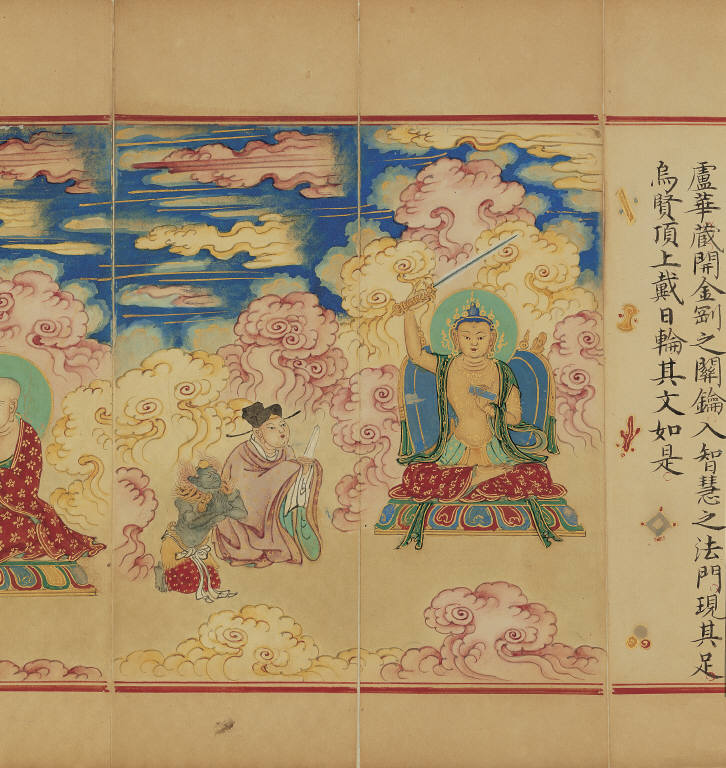 盧華蔵開金剛之關鑰入智慧之法門現其足
烏賢頂上戴日輪其文如是